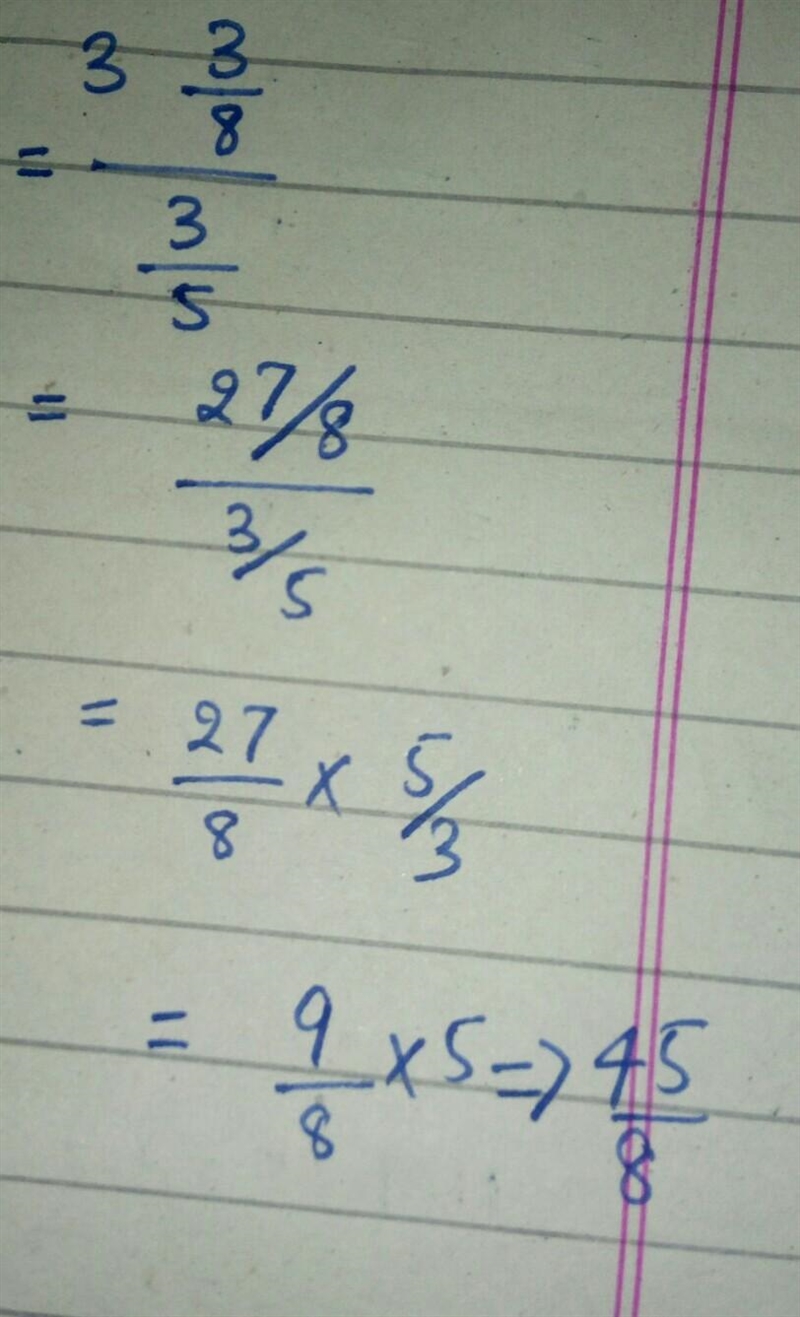 3 3/8
=
3/5
= 27/8
3/5
= 27/8 × 5/3
= 9/8 × 5 => 45/8